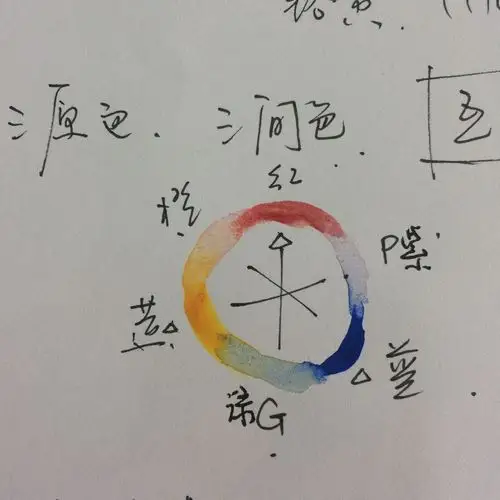 三原色. 三间色
红
橙
P紫
黄
蓝
绿G